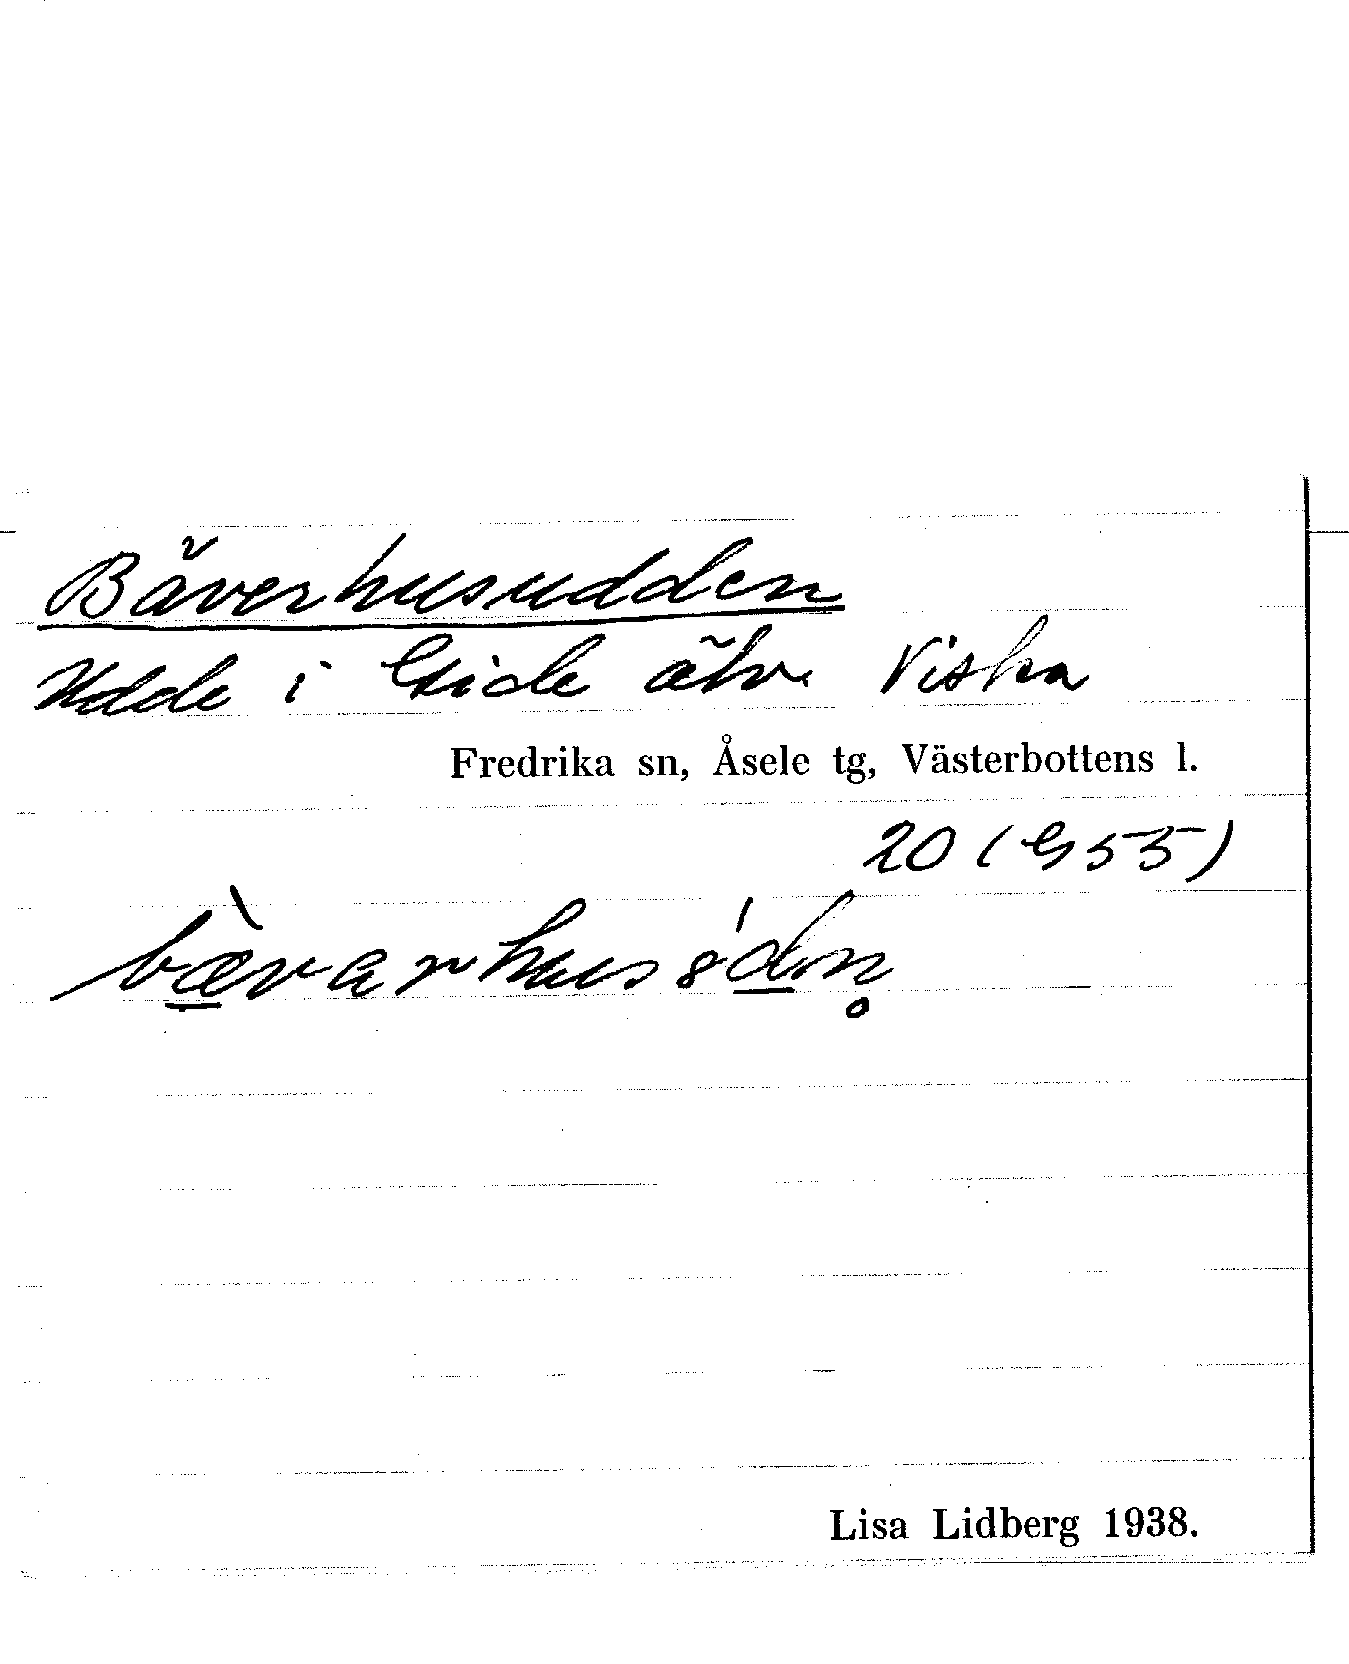 Bäverhusudden
Udde i Gide älv. Viska
Fredrika sn, Åsele tg, Västerbottens l.
20 (G 55)
bæ̀varhusódn̥
Lisa Lidberg 1938.